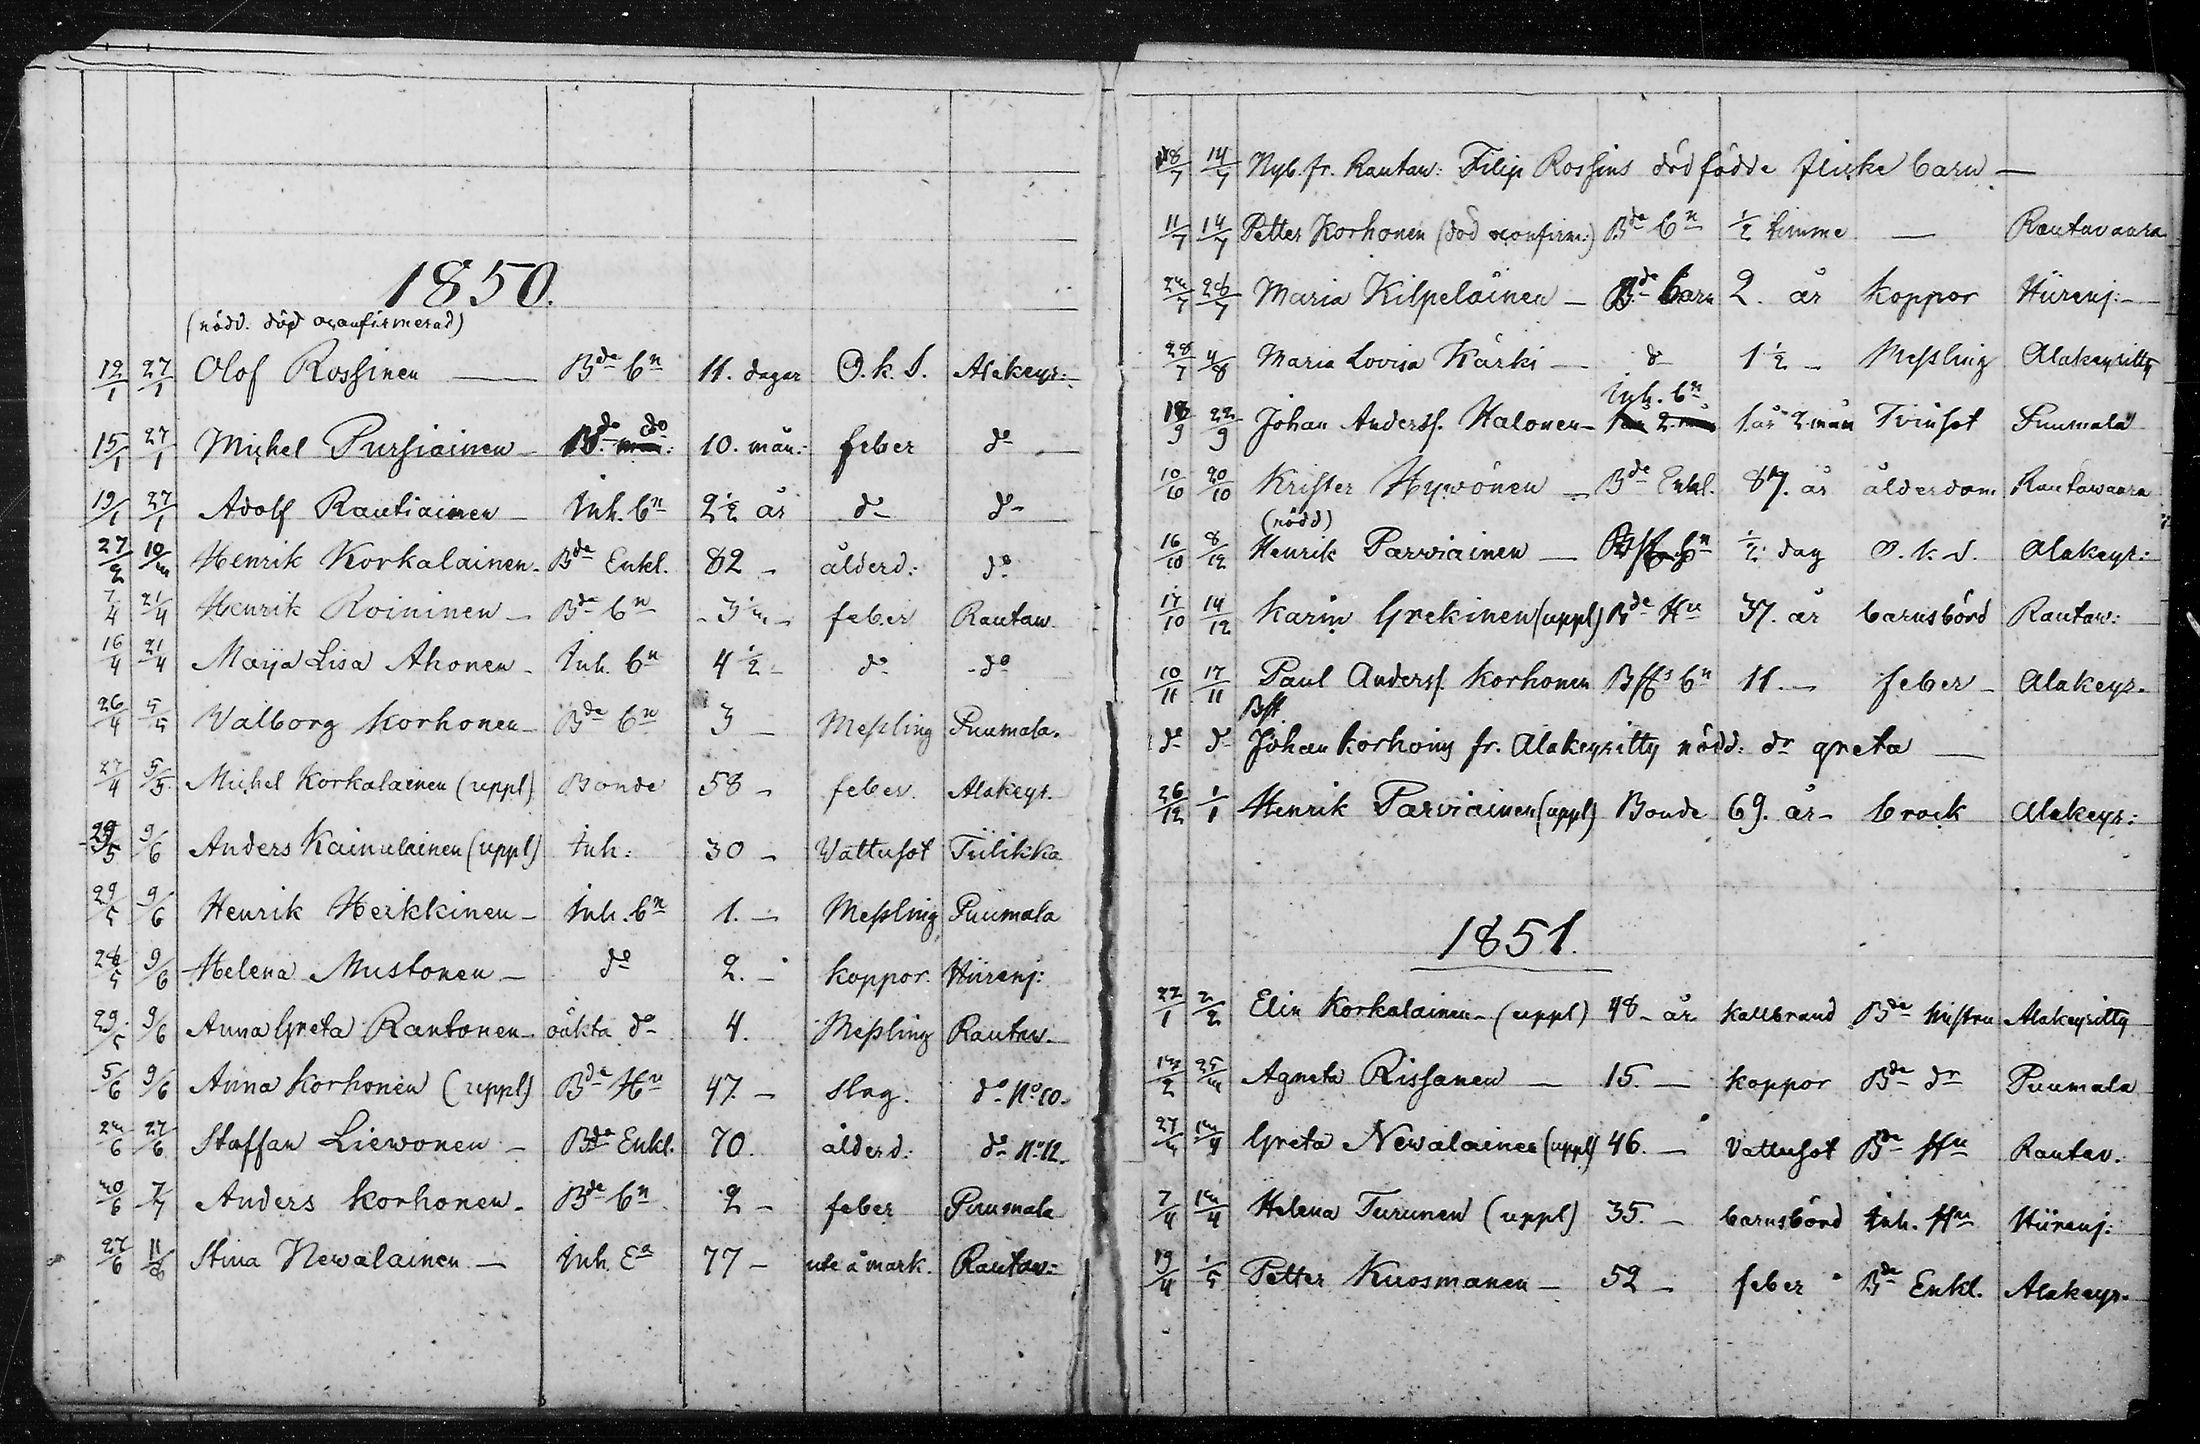 1850.
(nödd. död oconfirmerad)
19/1 27/1 Olof Rossinen — Bde bn 11. dagar O.k.S. Alakeyr:
15/1 27/1 Michel Pursiainen — Bde do 10. mån: feber do —
19/1 27/1 Adolf Rautiainen — Inh. bn 2 1/2 år do do —
27/2 10/3 Henrik Korkalainen — Bde Enkl. 82 — ålderd: do
7/4 21/4 Henrik Roininen — Bde bn — 3 — feber Rautaw.
16/4 21/4 Maija Lisa Ahonen — Inh. bn 4 1/2 — do do
26/4 5/5 Walborg Korhonen — Bde bn 3 — Messling Puumala.
27/4 5/5 Michel Korkalainen (uppl) Bonde 58 — feber. Alakeyr.
29/5 9/6 Anders Kainulainen (uppl) Inh: 30 — Vattusot Tiilikka
29/5 9/6 Henrik Heikkinen — Inh. bn 1. — Messling Puumala
28/5 9/6 Helena Mustonen — do 2. — koppor. Hiirenj:
29/5 9/6 Anna Greta Rautonen — oäkta do 4. Messling Rautaw.
5/6 9/6 Anna Korhonen (uppl) Bde Hu 47. — slag. do No 10.
23/6 27/6 Staffan Liewonen — Bde Enkl. 70. ålderd: do No 12.
30/6 7/7 Anders Korhonen — Bde bn 2 — feber Puumala
27/6 11/8 Stina Newalainen — Inh. Ea 77 — ute å mark. Rautaw:
8/7 14/7 Nyb. fr. Rautaw: Filip Rossins dödfödde flicke barn —
11/7 14/7 Petter Korhonen (död oconfirm:) Bde bn 1/2 timme — Rautavaara
23/7 28/7 Maria Kilpeläinen — Bde barn 2. år koppor Hiirenj: —
28/7 4/8 Maria Lovisa Kärki — do 1 1/2 — Messling Alakeyritty
Inh. bn
18/9 22/9 Johan Anderss. Halonen — 1 år 2 mån 1. år 2 mån Tvinsot Puumala
10/10 20/10 Krister Hyvönen — Bde Enkl. 87. år ålderdom. Rautawaara
(nödd)
16/10 8/12 Henrik Parviainen — 1/2 dag O.k.S. Alakeyr:
17/10 14/12 Karin Grekinen (uppl) Bde Hu 37. år barnsbörd Rautaw:
10/11 17/11 Paul Anderss. Korhonen Bffs bn 11. — feber — Alakeyr.
Bff
do do Johan Korhoins fr. Alakeyritty nödd: dr greta —
26/12 1/1 Henrik Parviainen (uppl) Bonde 69. år — brock Alakeyr:
1851.
22/1 2/2 Elin Korkalainen — (uppl) 48 — år kallbrand Bde hustru Alakeyritty
13/2 25/3 Agneta Rissanen — 15. — koppor Bde dr Puumala
27/3 13/4 Greta Newalainen (uppl) 46. — Vattusot Bde Hu Rautav.
7/4 13/4 Helena Turunen (uppl) 35. — barnsbörd Inh. Hu Hiirenj:
19/4 1/5 Petter Kuosmanen — 52 — feber Bde Enkl. Alakeyr.